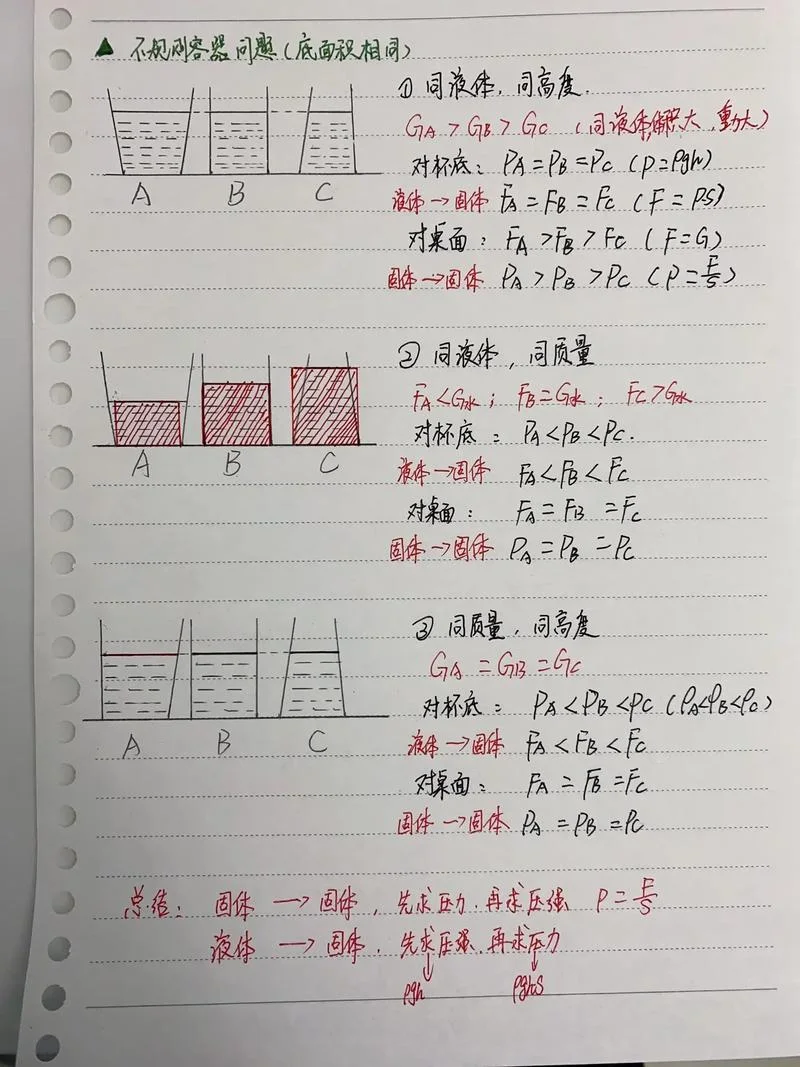 ▲ 不规则容器问题(底面积相同)
① 同液体,同高度.
GA > GB > GC (同液体,体积大,重力大)
对杯底: PA = PB = PC (P=ρgh)
液体→固体 FA = FB = FC (F = PS)
对桌面: FA > FB > FC (F=G)
固体→固体 PA > PB > PC (P = F/S)
A B C
② 同液体,同质量
FA < G水; FB = G水; FC > G水
对杯底: PA < PB < PC.
液体→固体 FA < FB < FC
对桌面: FA = FB = FC
固体→固体 PA = PB = PC
A B C
③ 同质量,同高度
GA = GB = GC
对杯底: PA < PB < PC (ρA<ρB<ρC)
液体→固体 FA < FB < FC
对桌面: FA = FB = FC
固体→固体 PA = PB = PC
A B C
总结: 固体 → 固体,先求压力,再求压强 P = F/S
液体 → 固体,先求压强,再求压力
ρgh ρghS